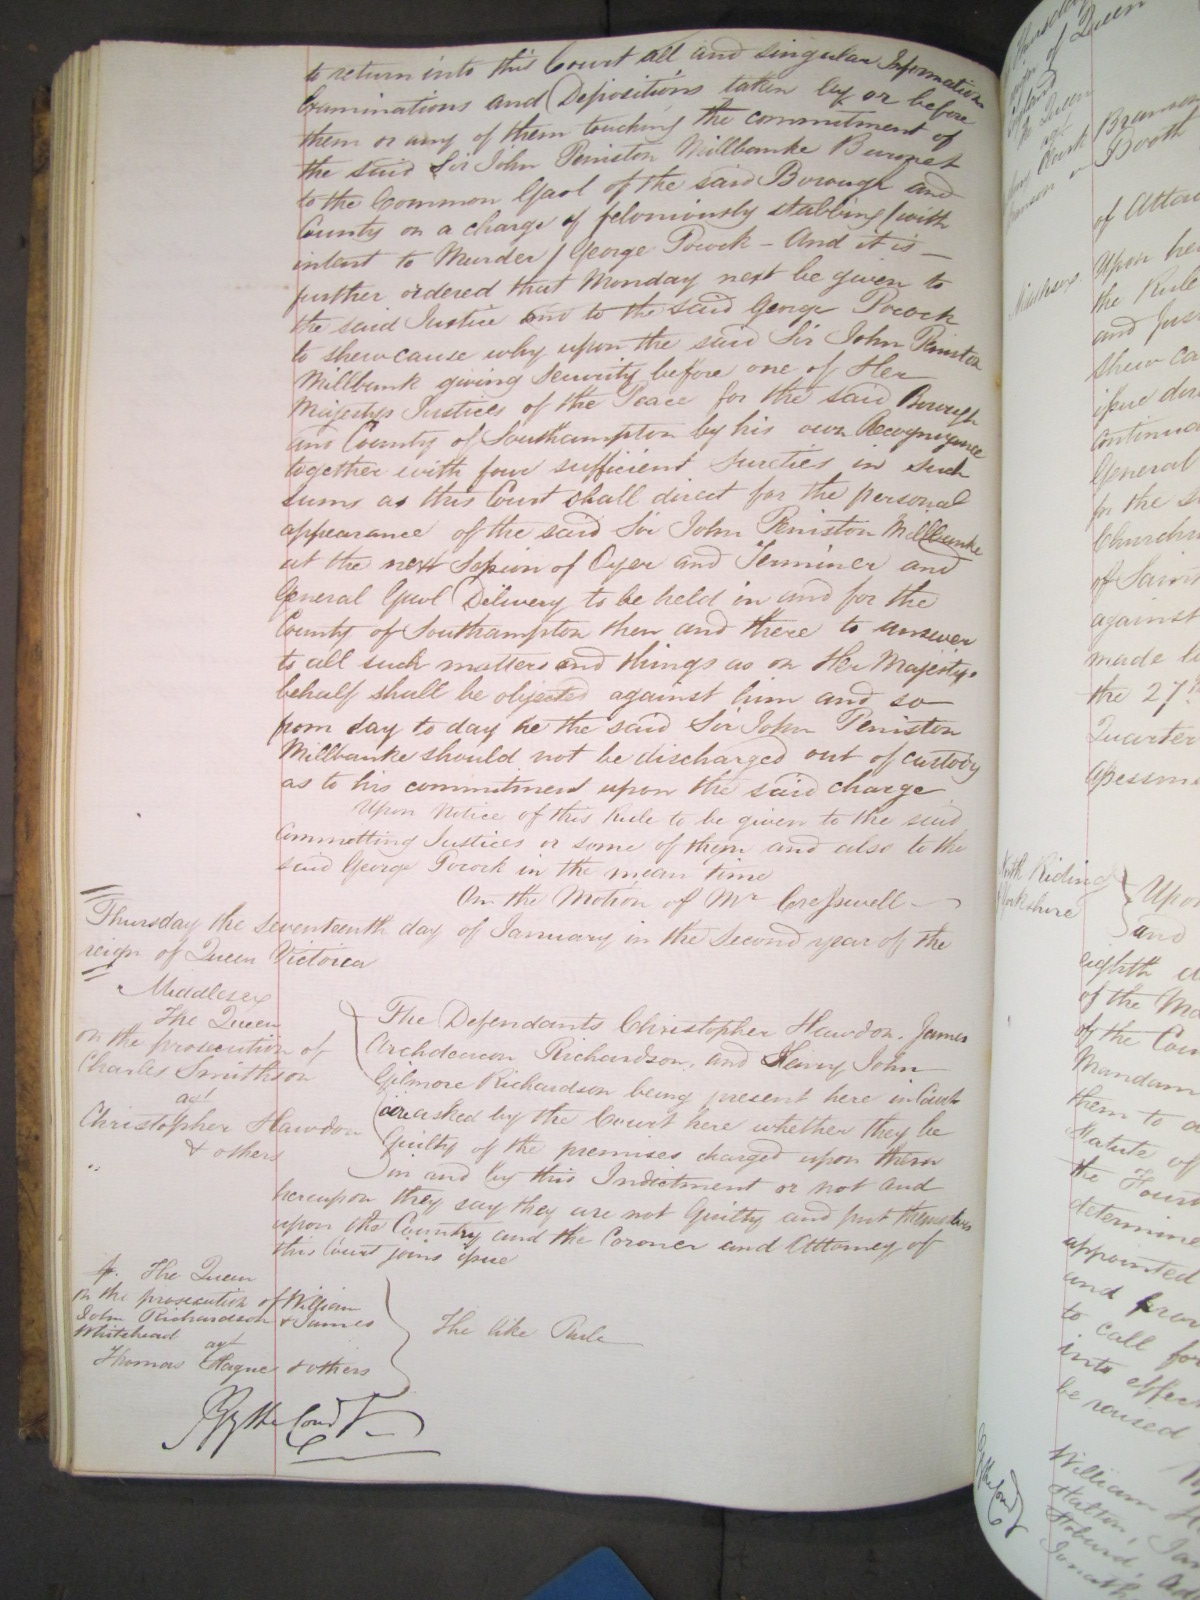 to return into this Court all and singular Informations
Examinations and Depositions taken by or before
them or any of them touching the commitment of
the said Sir John Peniston Millbanke Baronet
to the Common Gaol of the said Borough and
County on a charge of feloniously stabbing / with
intent to Murder / George Pocock – And it is –
further ordered that Monday next be given to
the said Justice and to the said George Pocock
to shew cause why upon the said Sir John Peniston
Millbank giving Security before one of Her
Majestys Justices of the Peace for the said Borough
and County of Southampton by his own Recognizance
together with four sufficient sureties in such
sums as this Court shall direct for the personal
appearance of the said Sir John Peniston Millbanke
at the next Session of Oyer and Terminer and
General Gaol Delivery to be held in and for the
County of Southampton then and there to answer
to all such matters and things as on Her Majestys
behalf shall be objected against him and so
from day to day he the said Sir John Peniston
Millbanke should not be discharged out of custody
as to his commitment upon the said charge
Upon Notice of this Rule to be given to the said
Committing Justices or some of them and also to the
said George Pocock in the mean time
On the Motion of Mr Cresswell
Thursday the Seventeenth day of January in the Second year of the
reign of Queen Victoria
Middlesex
The Queen
on the prosecution of
Charles Smithson
agt
Christopher Hawdon
& others
The Defendants Christopher Hawdon, James
Archdeacon Richardson, and Henry John
Gilmore Richardson being present here in Court
are asked by the Court here whether they be
Guilty of the premises charged upon them
in and by this Indictment or not and
hereupon they say they are not Guilty and put themselves
upon the Country and the Coroner and Attorney of
this Court joins issue
The Queen
on the prosecution of William
John Richardson & James
Whitehead
agt
Thomas Hague & others
The like Rule
By the Court
of Queen
the Queen
agt
Branson
Booth
of Attor
Upon her
the Rule
and Jus
shew ca
issue dir
continued
General
for the s
Church
of Saint
against
made to
the 27th
Quarter
Assessme
North Riding
Yorkshire
Upon
and
eighth
of the Ma
of the Coun
Mandam
them to
Statute of
the Four
determine
appointed
and
to call for
into effect
be raised
By the Court
William H
Halton, Ja
Jonath